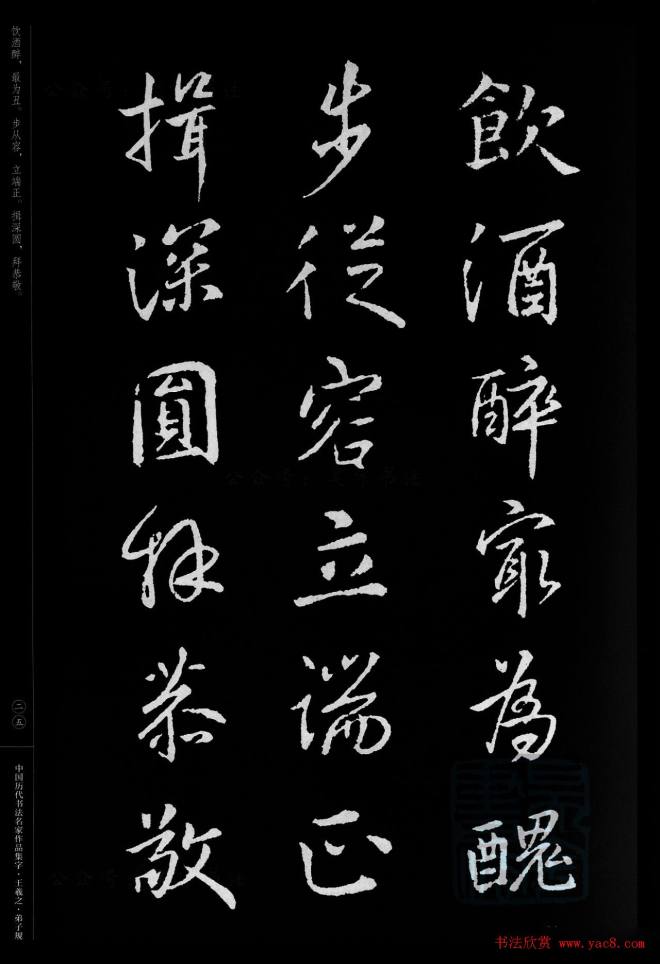 飲酒醉寂為醜
步從容立端正
揖深圓拜恭敬
饮酒醉，最为丑。步从容，立端正。揖深圆，拜恭敬。
二五
中国历代书法名家作品集字·王羲之·弟子规
书法欣赏 www.yac8.com